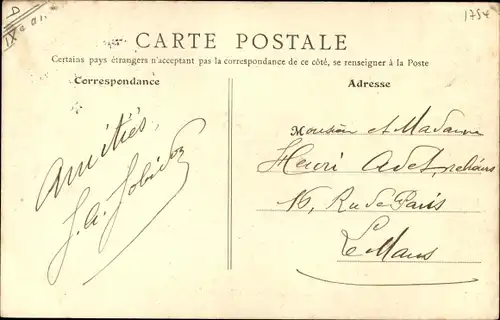 D
1754
CARTE POSTALE
Certains pays étrangers n'acceptant pas la correspondance de ce côté, se renseigner à la Poste
Correspondance
Adresse
Amitiés,
Monsieur et Madame
Henri Adet
16, Rue de Paris
Le Mans